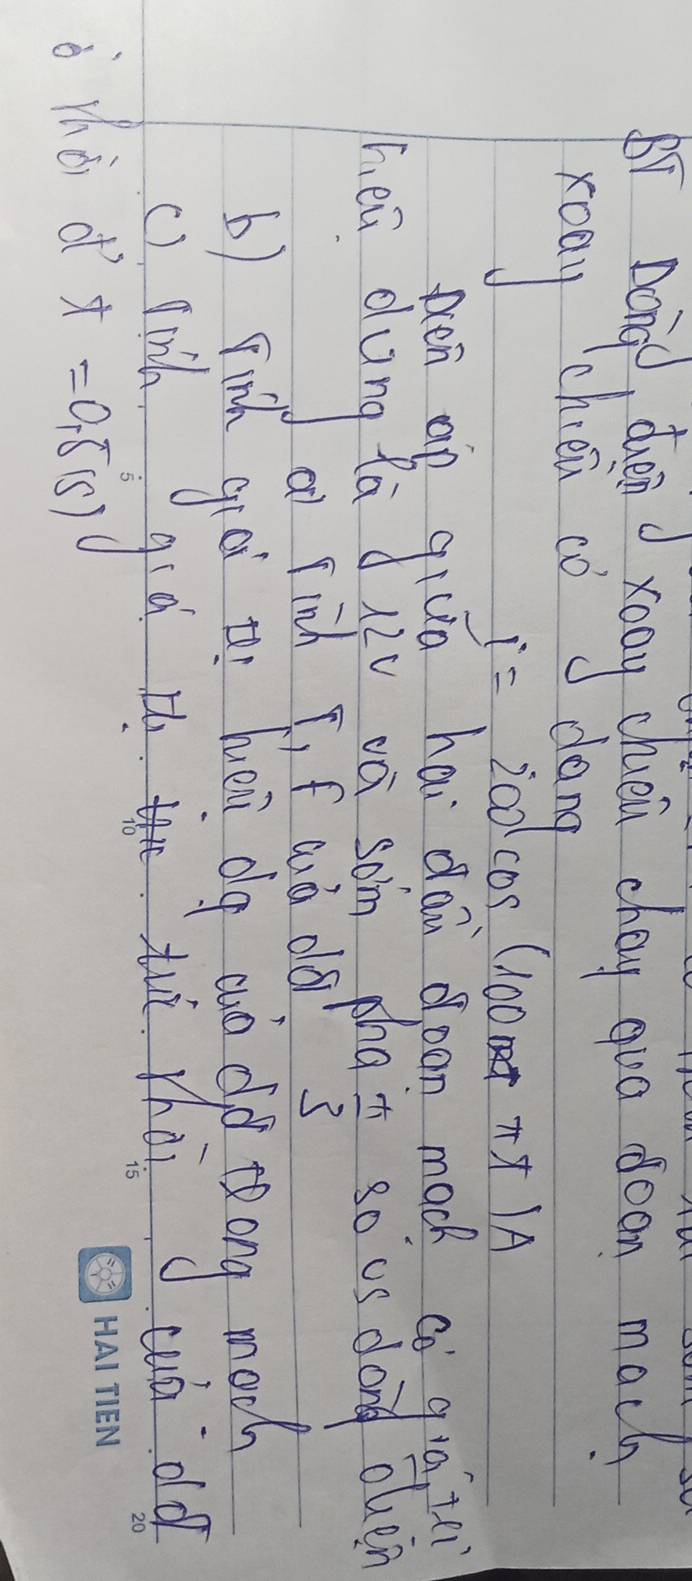 BT Dòng điện xoay chiều chạy qua đoạn mạch
xoay chiều có dạng
i = 200cos (100 πt)A
Điện áp giữa hai đầu đoạn mạch có giá trị
hiệu dụng là 12V và sớm pha π/3 so vs dòng điện
a) Tính T, f của dđ
b) Tính giá trị hiệu dg của dđ trong mạch
c) Tính giá trị tức thời của dđ
ở thời đ' t = 0,5(s)
5
10
15
20
HAI TIEN